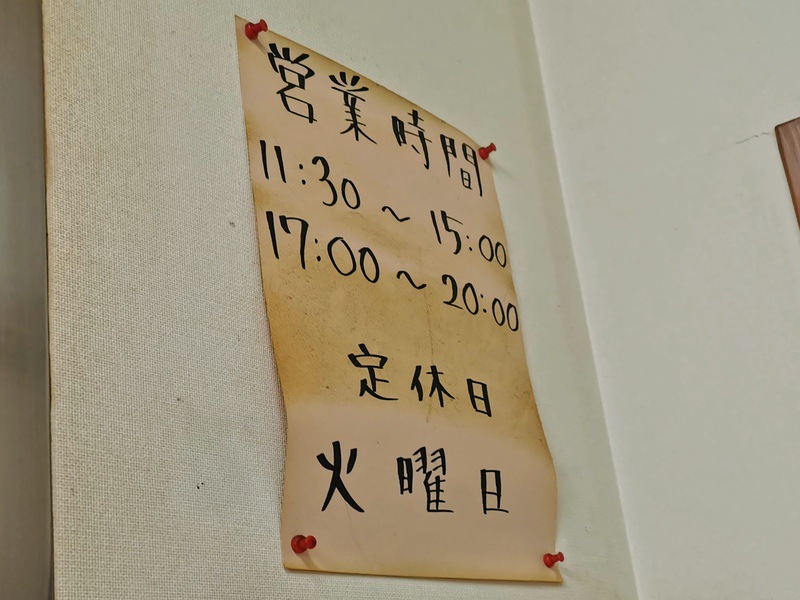 営業時間
11:30 ～ 15:00
17:00 ～ 20:00
定休日
火曜日